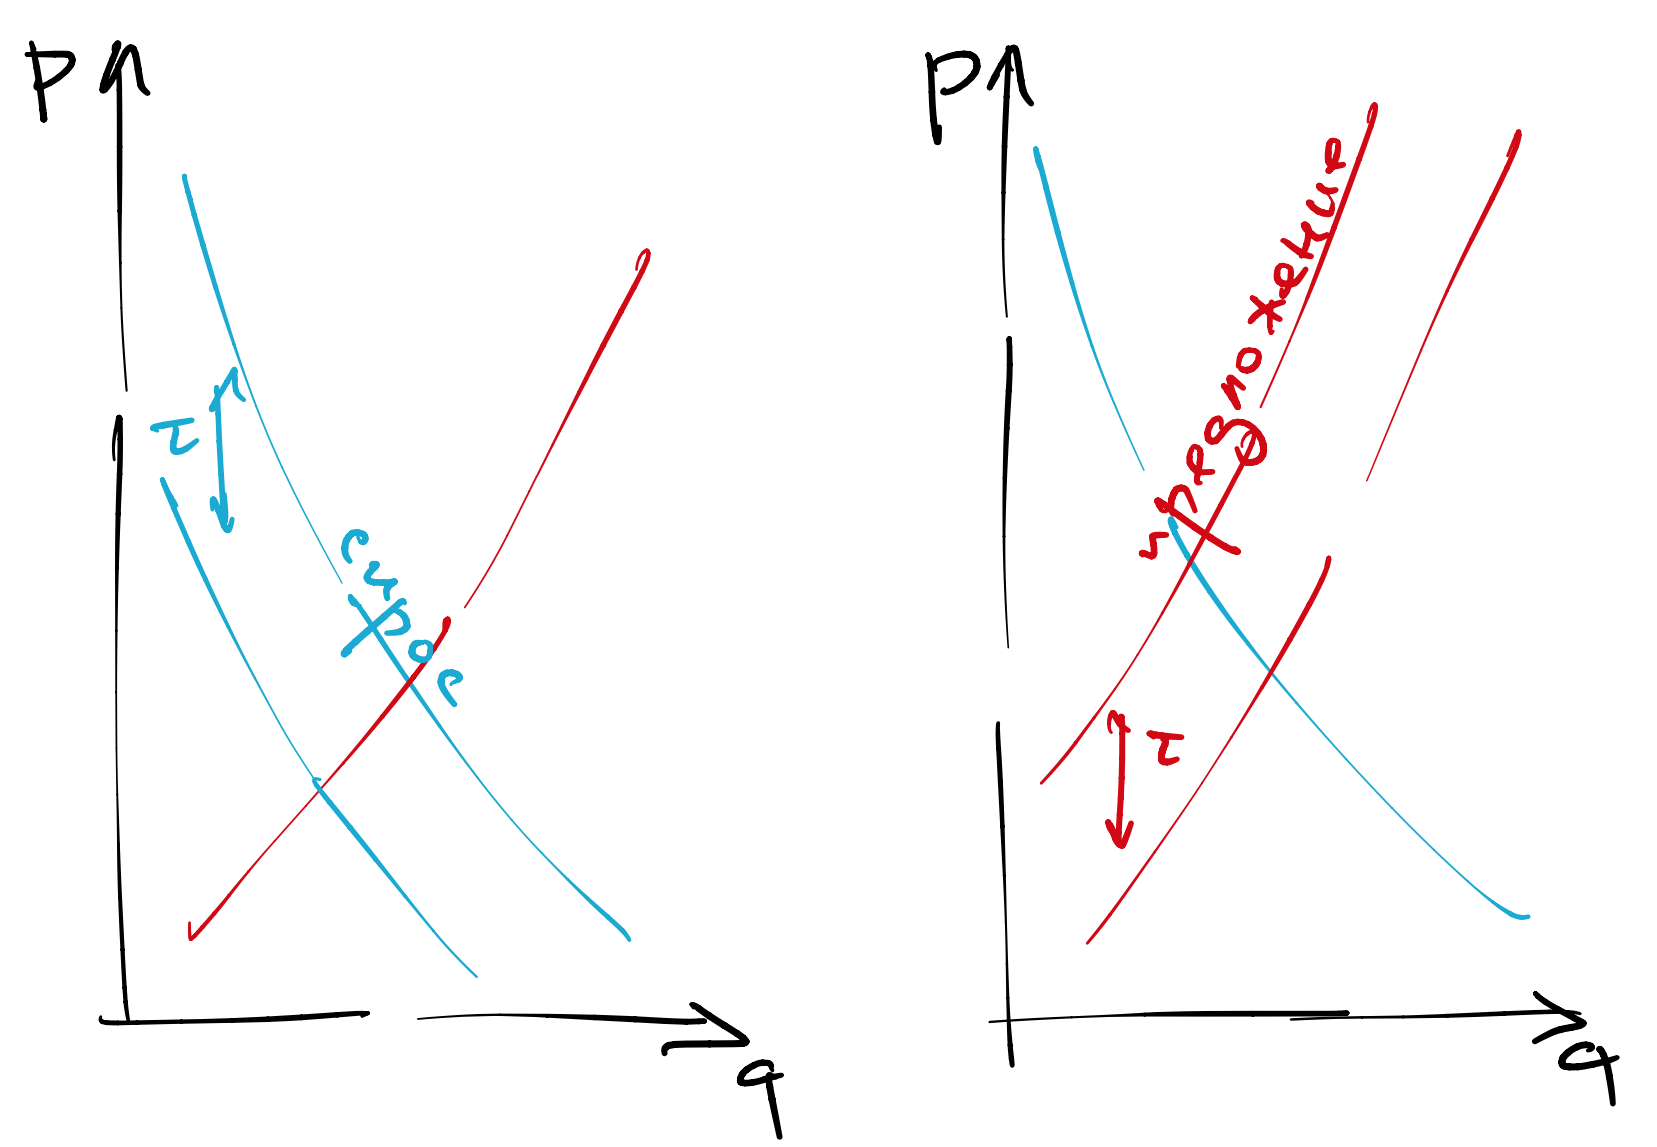 P
τ
спрос
q
P
предложение
τ
q